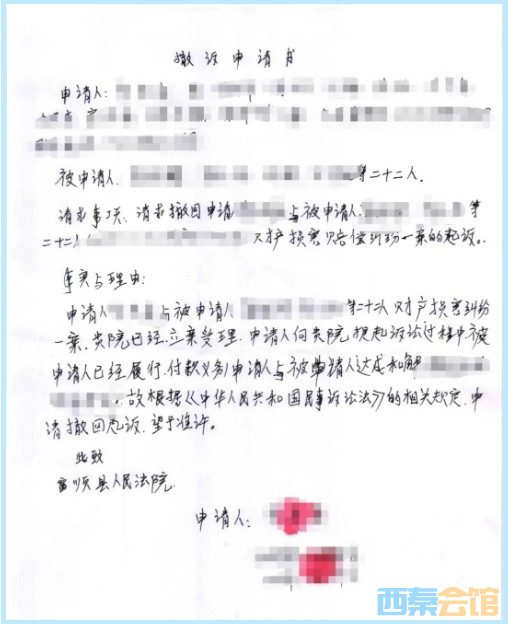 撤诉申请书
申请人:
被申请人: 等二十二人.
请求事项、请求撤回申请 与被申请人 等
二十二人 财产损害赔偿纠纷一案的起诉。
事实与理由:
申请人 与被申请人 等二十二人财产损害纠纷
一案,贵院已经立案受理,申请人向贵院提起诉讼过程中被
申请人已经履行付款义务,申请人与被申请人达成和解
,故根据《中华人民共和国民事诉讼法》的相关规定,申
请撤回起诉.望予准许。
此致
富顺县人民法院.
申请人:
西秦会馆